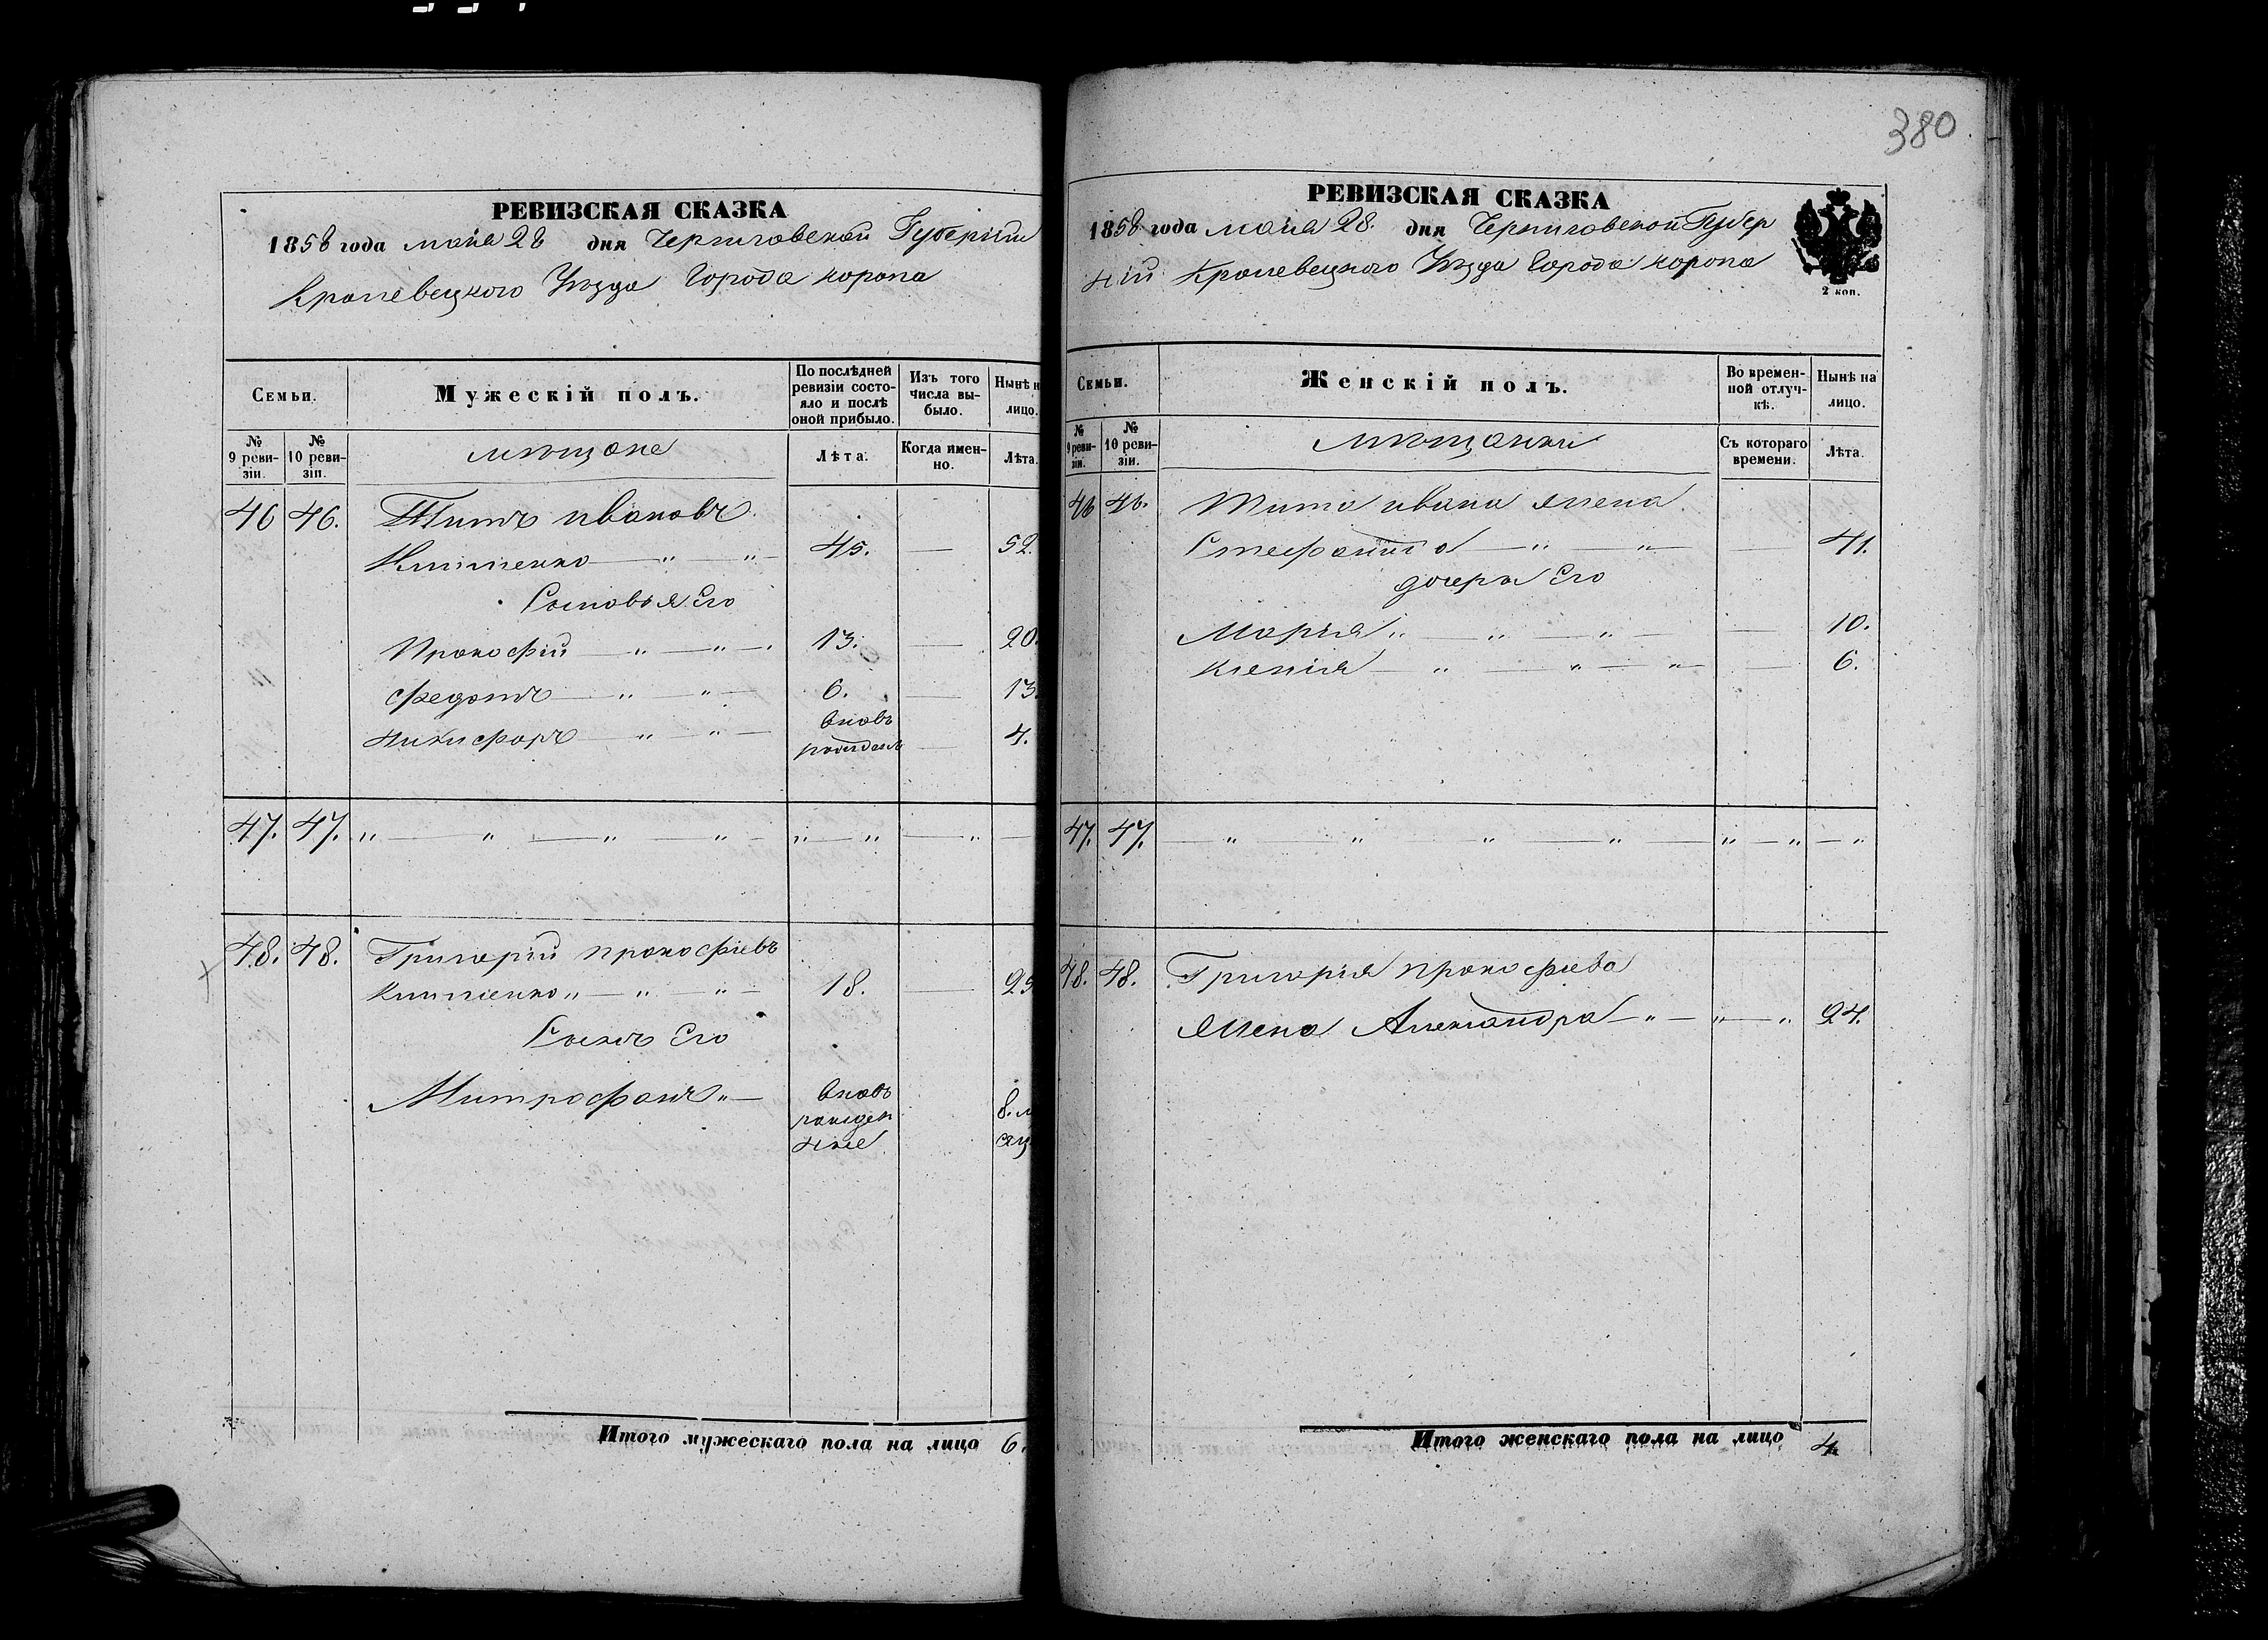 380
РЕВИЗСКАЯ СКАЗКА
1858 года мая 28 дня Черниговской Губерніи
Кролевецкого Уезда Города коропа
Семьи.
Мужескій полъ.
По послѣдней ревизіи состояло и послѣ оной прибыло.
Изъ того числа выбыло.
Нынѣ н
лицо.
№ 9 ревизіи.
№ 10 ревизіи.
мещане
Лѣта.
Когда именно.
Лѣта.
46 46. Титъ ивановъ
45. — 52.
Сыновья Его
Прокофій — " — " — 13. — 20.
Федотъ — " — " — 6. — 13
Никифоръ — " — " — вновь рожденъ — 4.
47. 47. " — " — " — " — " — " — " —
48. 48. Григорій прокофіевъ
18. — 29
Сынъ Его
Митрофанъ " — вновь рожден ные 8. м сяц
Итого мужескаго пола на лицо 6.
РЕВИЗСКАЯ СКАЗКА
1858 года мая 28. дня Черниговской Губер
ній Кролевецкого Уезда Города коропа
2 коп.
Семьи.
Женскій полъ.
Во временной отлучкѣ.
Нынѣ на лицо.
№ 9 ревизіи.
№ 10 ревизіи.
мещанки
Съ котораго времени.
Лѣта.
46 46. Тита ивана жена
Стефанида — " — " — 41.
дочери Его
Марія " — " — " — 10.
Ксенія — " — " — " — 6.
47. 47. — " — " — " — " — " — " — "
48. 48. Григорія прокофіева
жена Александра — " — " — " 24.
Итого женскаго пола на лицо 4